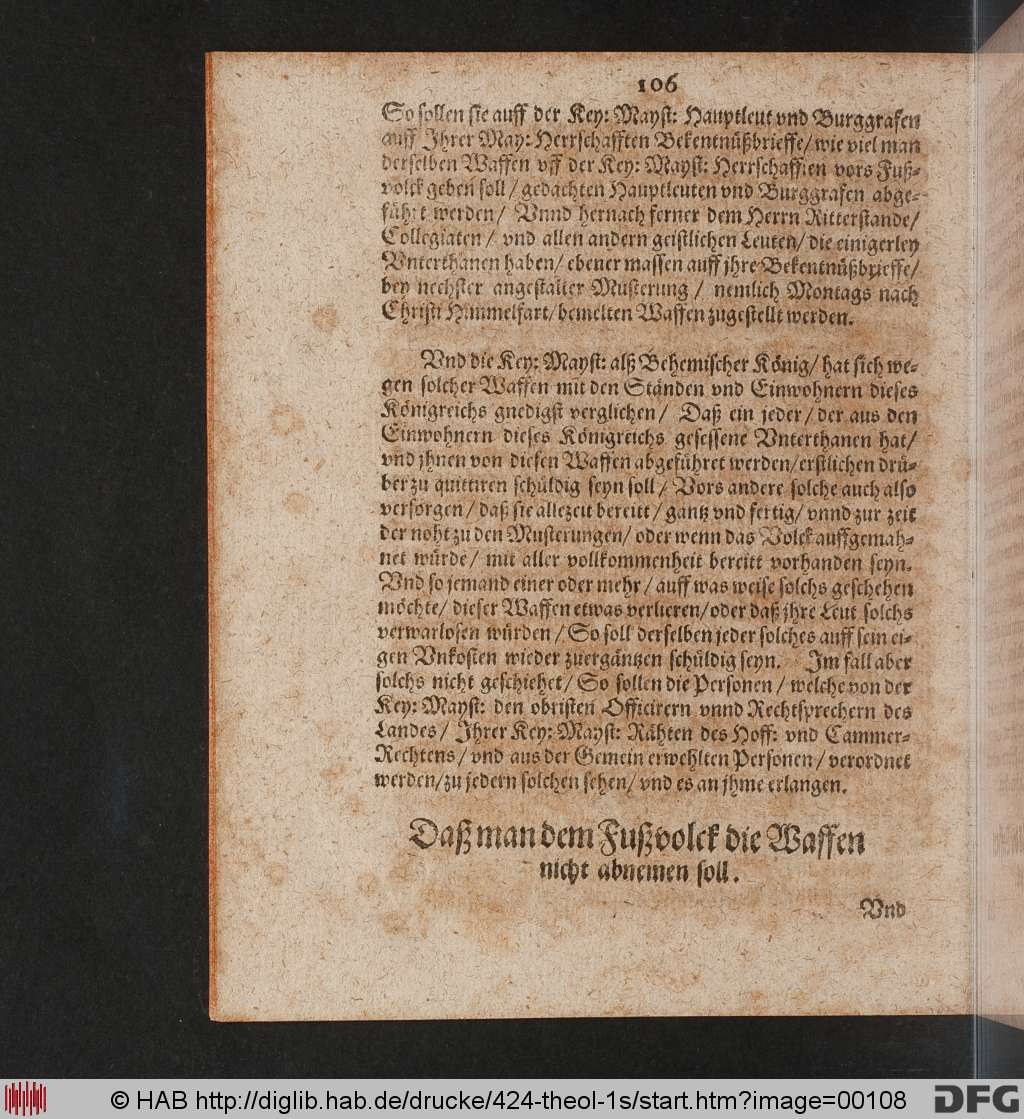 106
So sollen sie auff der Key: Mayst: Hauptleut vnd Burggrafen
auff Jhrer May: Herrschafften Bekentnüßbrieffe/ wie viel man
derselben Waffen vff der Key: Mayst: Herrschafften vors Fuß-
volck geben soll/ gedachten Hauptleuten vnd Burggrafen abge-
führt werden/ Vnnd hernach ferner dem Herrn Ritterstande/
Collegiaten/ vnd allen andern geistlichen Leuten/ die einigerley
Vnterthanen haben/ ebener massen auff jhre Bekentnüßbrieffe/
bey nechster angestalter Musterung/ nemlich Montags nach
Christi Himmelfart/ bemelten Waffen zugestellt werden.
Vnd die Key: Mayst: alß Behemischer König/ hat sich we-
gen solcher Waffen mit den Ständen vnd Einwohnern dieses
Königreichs gnedigst verglichen/ Daß ein jeder/ der aus den
Einwohnern dieses Königreichs gesessene Vnterthanen hat/
vnd jhnen von diesen Waffen abgeführet werden/ erstlichen drü-
ber zu quittiren schüldig seyn soll/ Vors andere solche auch also
versorgen/ daß sie allezeit bereitt/ gantz vnd fertig/ vnnd zur zeit
der noht zu den Musterungen/ oder wenn das Volck auffgemah-
net würde/ mit aller vollkommenheit bereitt vorhanden seyn.
Vnd so jemand einer oder mehr/ auff was weise solchs geschehen
möchte/ dieser Waffen etwas verlieren/ oder daß jhre Leut solchs
verwarlosen würden/ So soll derselben jeder solches auff sein ei-
gen Vnkosten wieder zuergäntzen schüldig seyn. Jm fall aber
solchs nicht geschiehet/ So sollen die Personen/ welche von der
Key: Mayst: den obristen Officirern vnnd Rechtsprechern des
Landes/ Jhrer Key: Mayst: Rähten des Hoff: vnd Cammer-
Rechtens/ vnd aus der Gemein erwehlten Personen/ verordnet
werden/ zu jedern solchen sehen/ vnd es an jhme erlangen.
Daß man dem Fußvolck die Waffen
nicht abnemen soll.
Vnd
© HAB http://diglib.hab.de/drucke/424-theol-1s/start.htm?image=00108
DFG